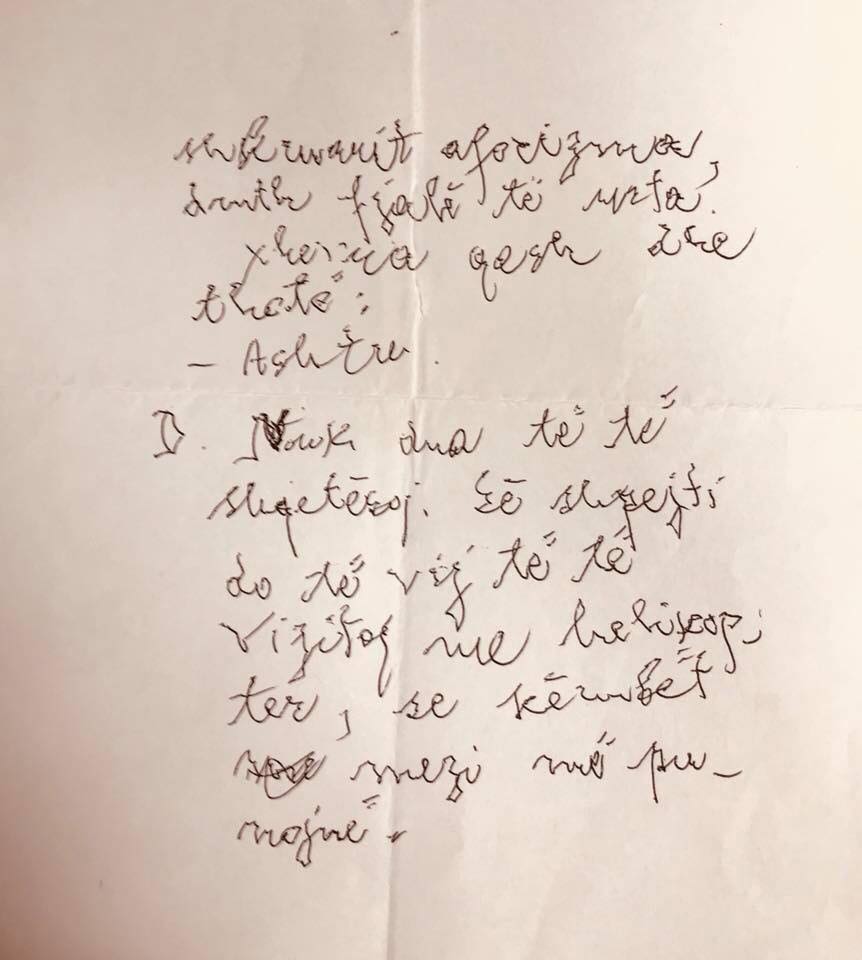 shkruarit aforizma,
dmth fjalë të urta.
Xhevia qesh dhe
thotë:
- Ashtu.
D. Nuk dua të të
shqetësoj. Së shpejti
do të vij të të
vizitoj me helikop-
ter, se këmbët
mezi më pu-
nojnë.